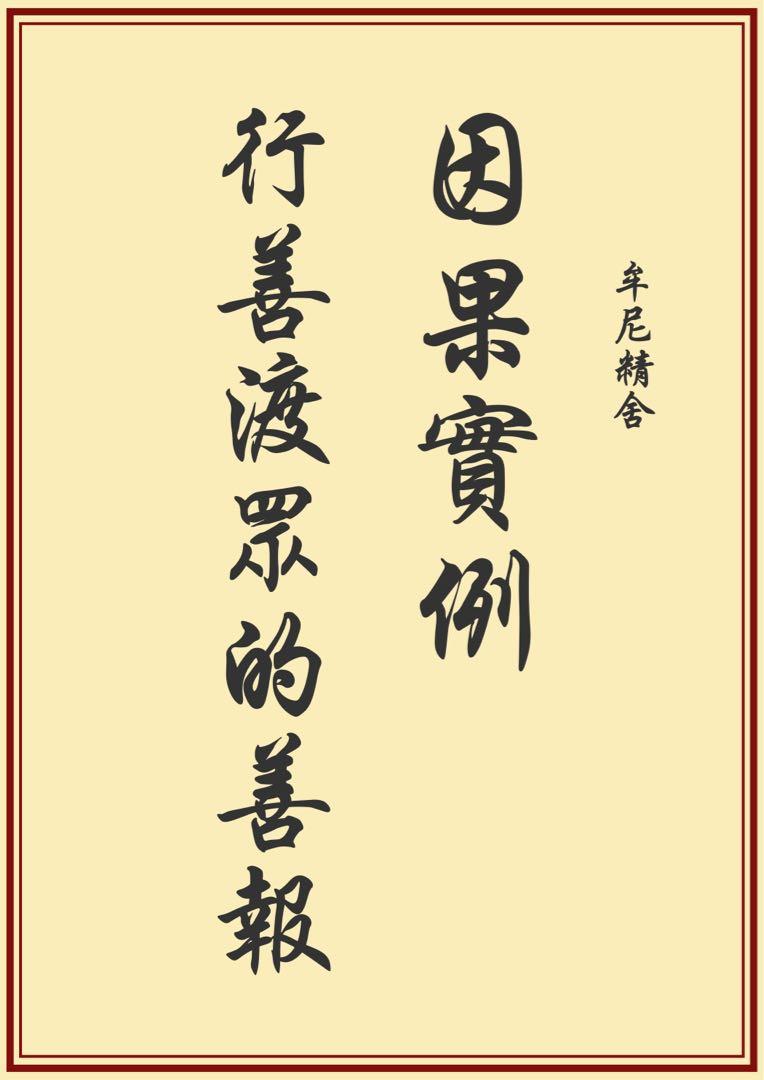 牟尼精舍
因果實例
行善渡眾的善報